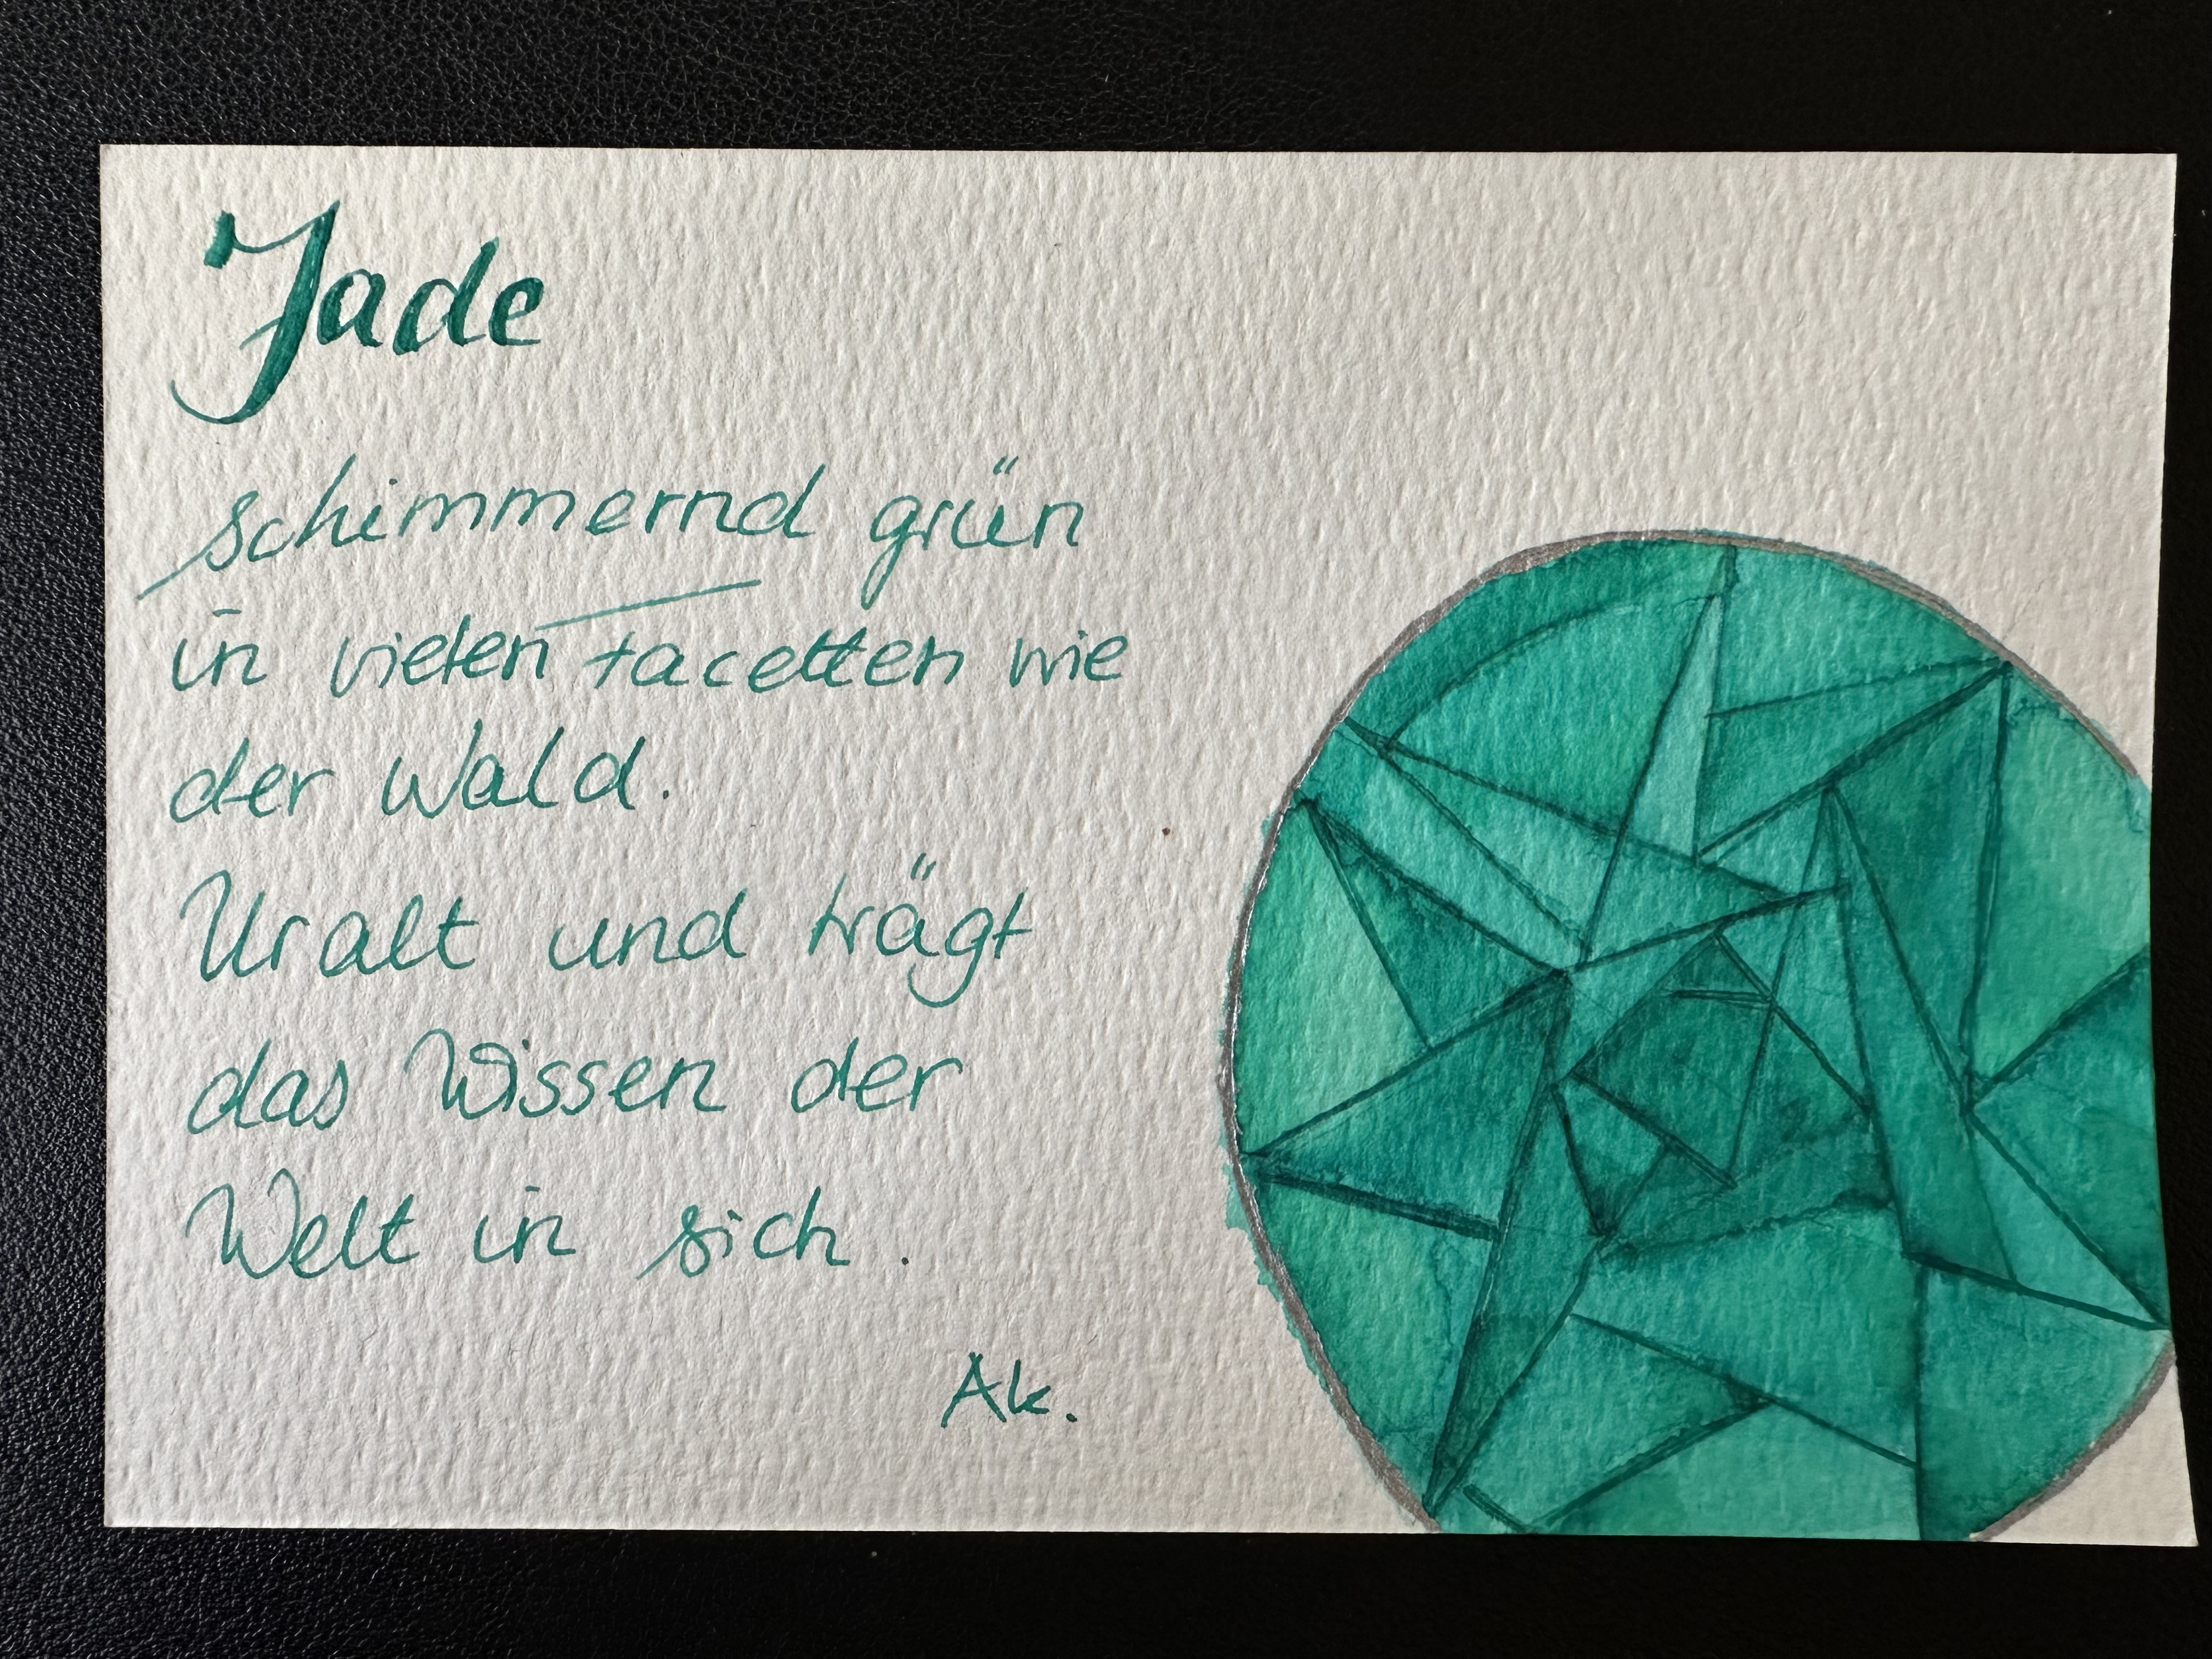 Jade
schimmernd grün
in vielen Facetten wie
der Wald.
Uralt und trägt
das Wissen der
Welt in sich.
Ak.